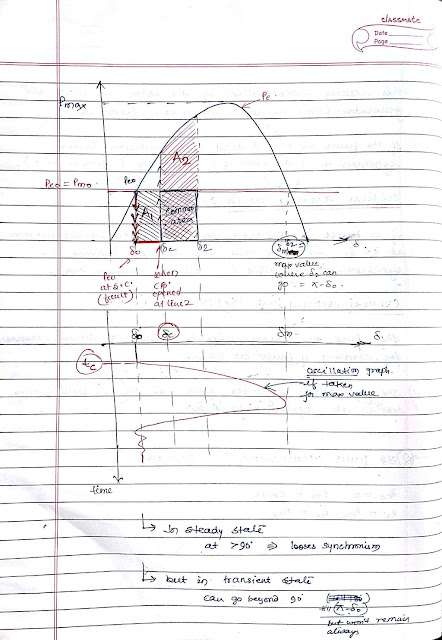 classmate
Date
Page
Pmax
Pe
A2
Peo = Pmo
Peo
A1
common
area
δo
δc
δ2
δm
δ
Peo
at s.c.
(fault)
when
CB
opened
at line 2
max value
where δ2 can
go = π-δo
δo
δc
δm
δ
tc
oscillation graph
if taken
for max value
time
In steady state
at >90° ⇒ looses synchronism
but in transient state
can go beyond 90°
(π-δo)
but won't remain
always